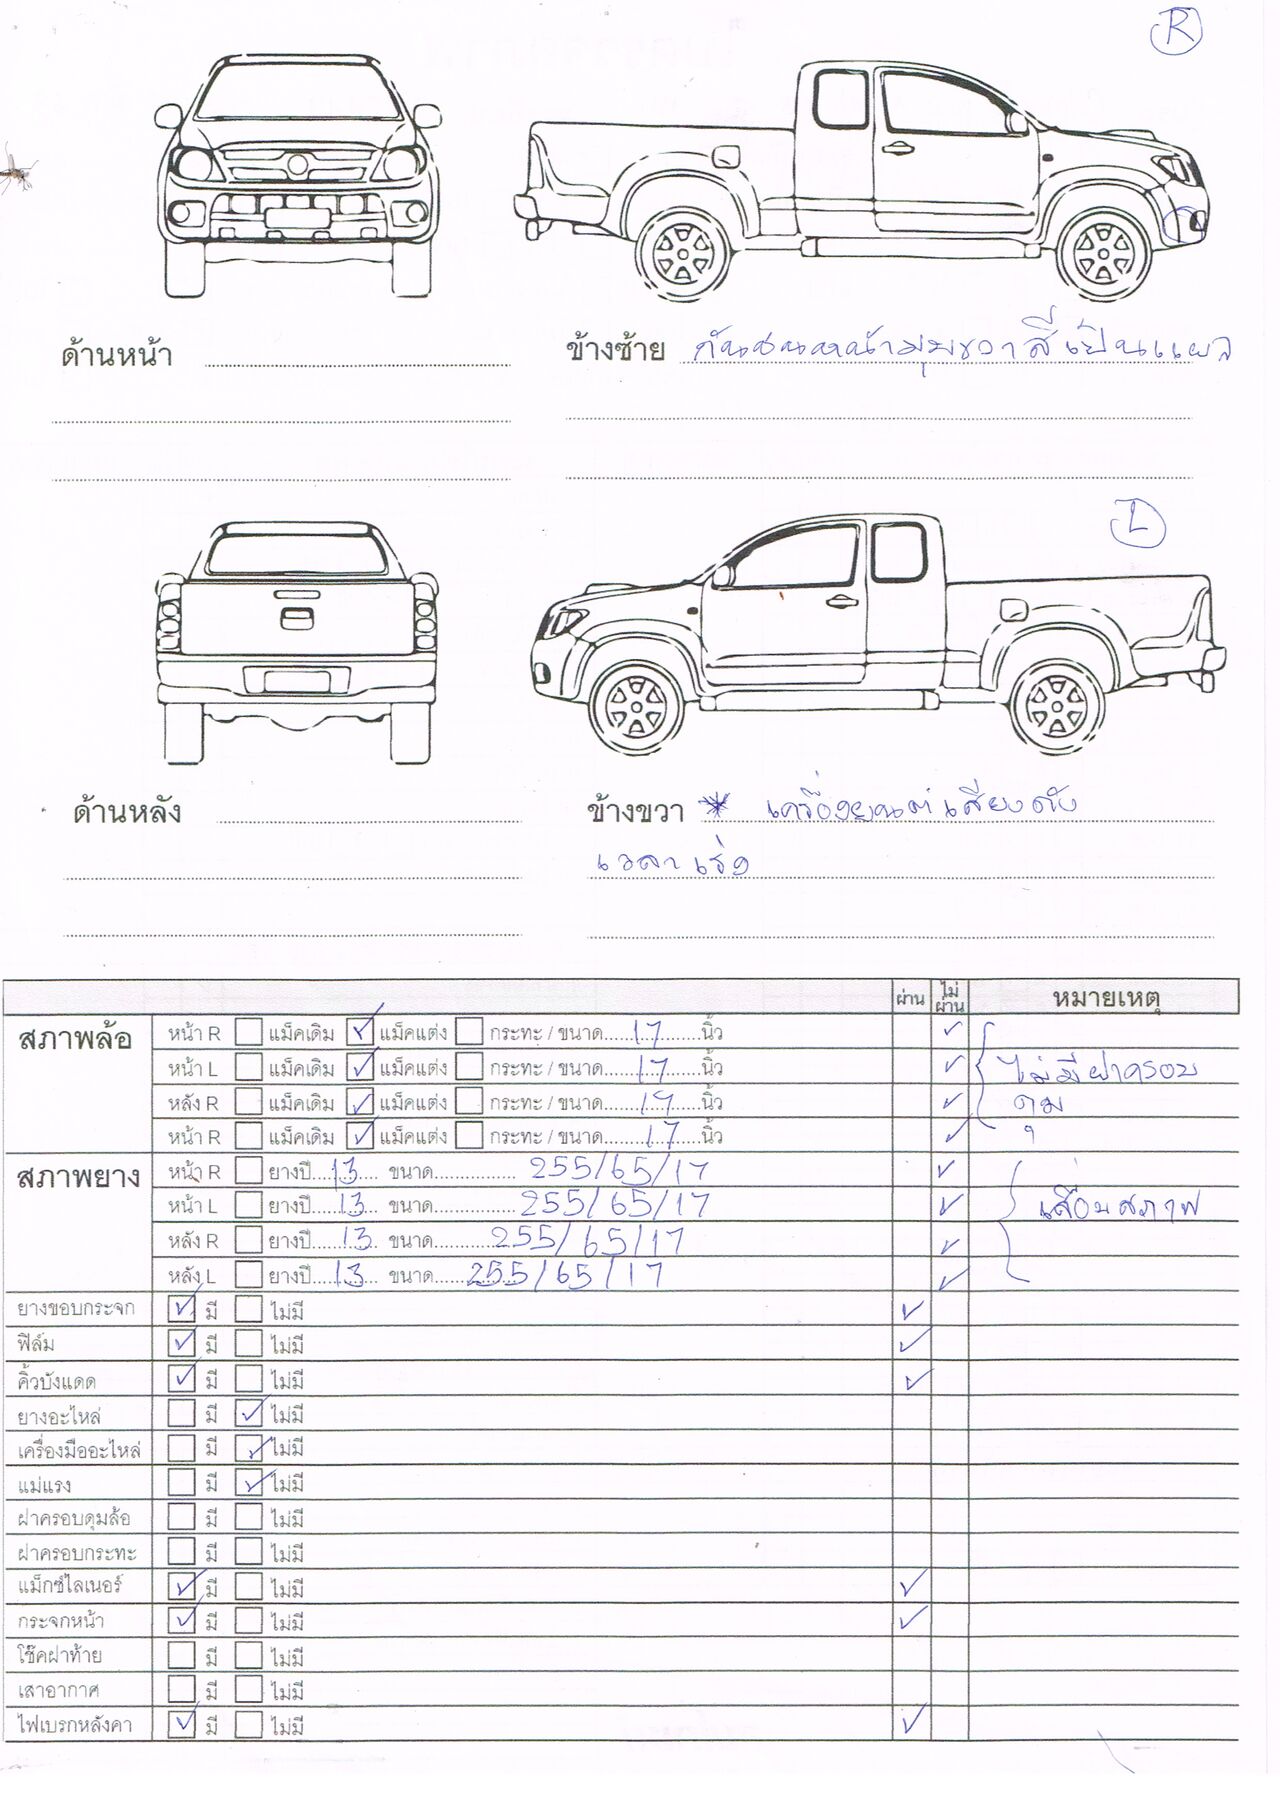 R
ด้านหน้า
ข้างซ้าย กันชนหน้ามุมขวาสีเป็นแผล
L
ด้านหลัง
ข้างขวา * เครื่องยนต์เสียงดัง
เวลาเร่ง
ผ่าน ไม่ผ่าน หมายเหตุ
สภาพล้อ หน้า R แม็คเดิม ✓ แม็คแต่ง กระทะ / ขนาด 17 นิ้ว ✓
หน้า L แม็คเดิม ✓ แม็คแต่ง กระทะ / ขนาด 17 นิ้ว ✓ ไม่มีฝาครอบ
หลัง R แม็คเดิม ✓ แม็คแต่ง กระทะ / ขนาด 17 นิ้ว ✓ ดุม
หน้า R แม็คเดิม ✓ แม็คแต่ง กระทะ / ขนาด 17 นิ้ว ✓
สภาพยาง หน้า R ยางปี 13 ขนาด 255/65/17 ✓
หน้า L ยางปี 13 ขนาด 255/65/17 ✓ เสื่อมสภาพ
หลัง R ยางปี 13 ขนาด 255/65/17 ✓
หลัง L ยางปี 13 ขนาด 255/65/17 ✓
ยางขอบกระจก ✓ มี ไม่มี ✓
ฟิล์ม ✓ มี ไม่มี ✓
คิ้วบังแดด ✓ มี ไม่มี ✓
ยางอะไหล่ มี ✓ ไม่มี
เครื่องมืออะไหล่ มี ✓ ไม่มี
แม่แรง มี ✓ ไม่มี
ฝาครอบดุมล้อ มี ไม่มี
ฝาครอบกระทะ มี ไม่มี
แม็กซ์ไลเนอร์ ✓ มี ไม่มี ✓
กระจกหน้า ✓ มี ไม่มี ✓
โช๊คฝาท้าย มี ไม่มี
เสาอากาศ มี ไม่มี
ไฟเบรกหลังคา ✓ มี ไม่มี ✓